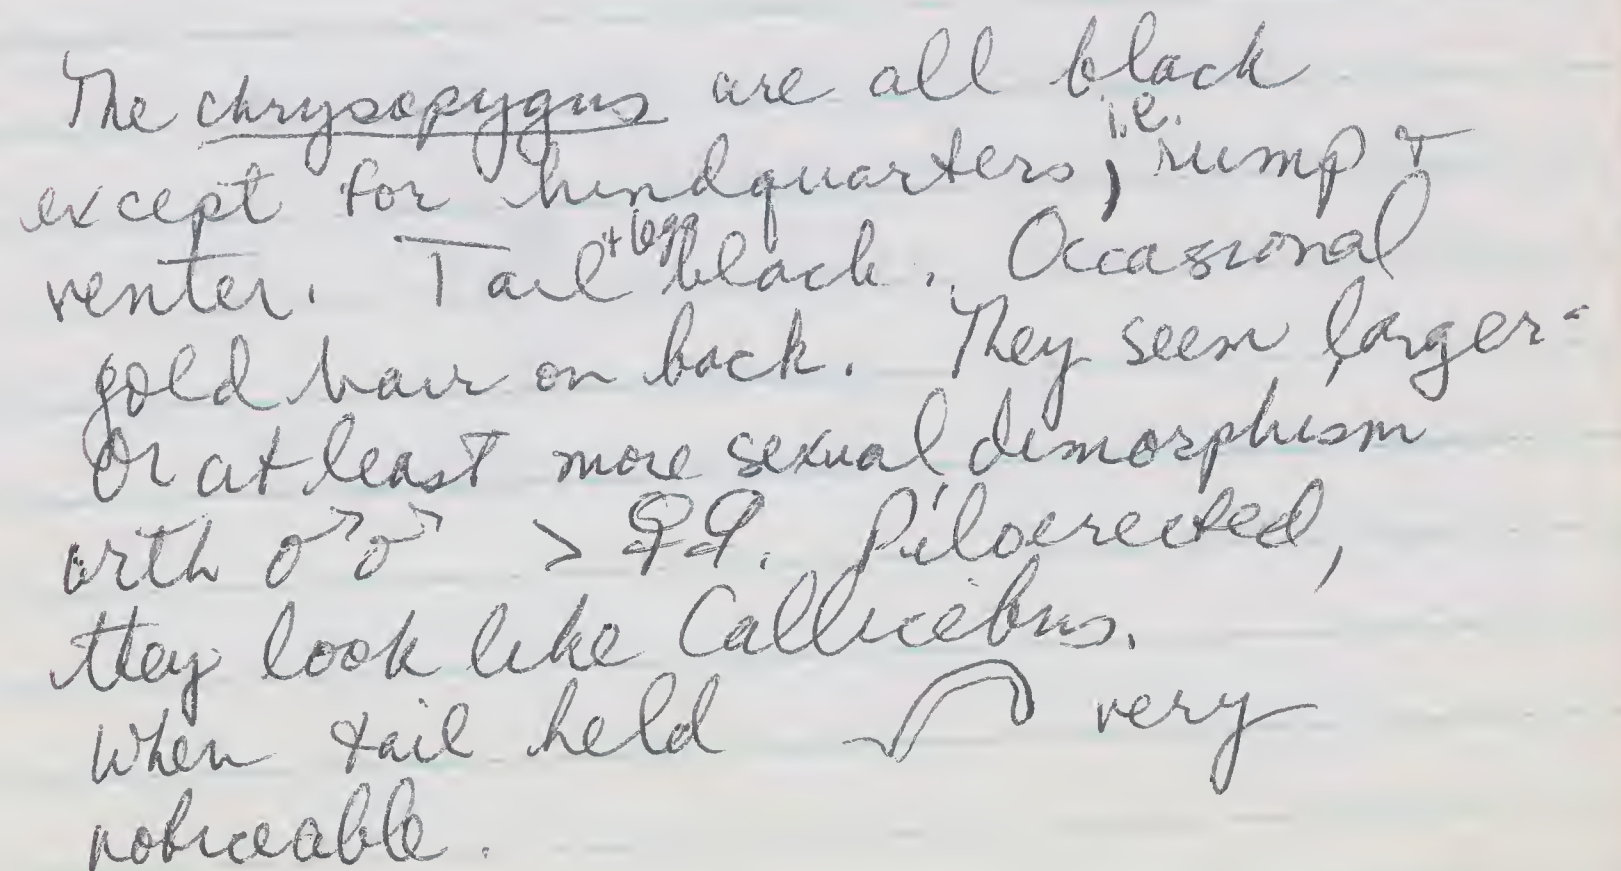 The chrysopygus are all black
except for hindquarters, i.e. rump &
venter. Tail + legs black. Occasional
gold hair on back. They seem larger -
or at least more sexual dimorphism
with ♂♂ > ♀♀. Piloerected,
they look like Callicebus.
When tail held very
noticeable.